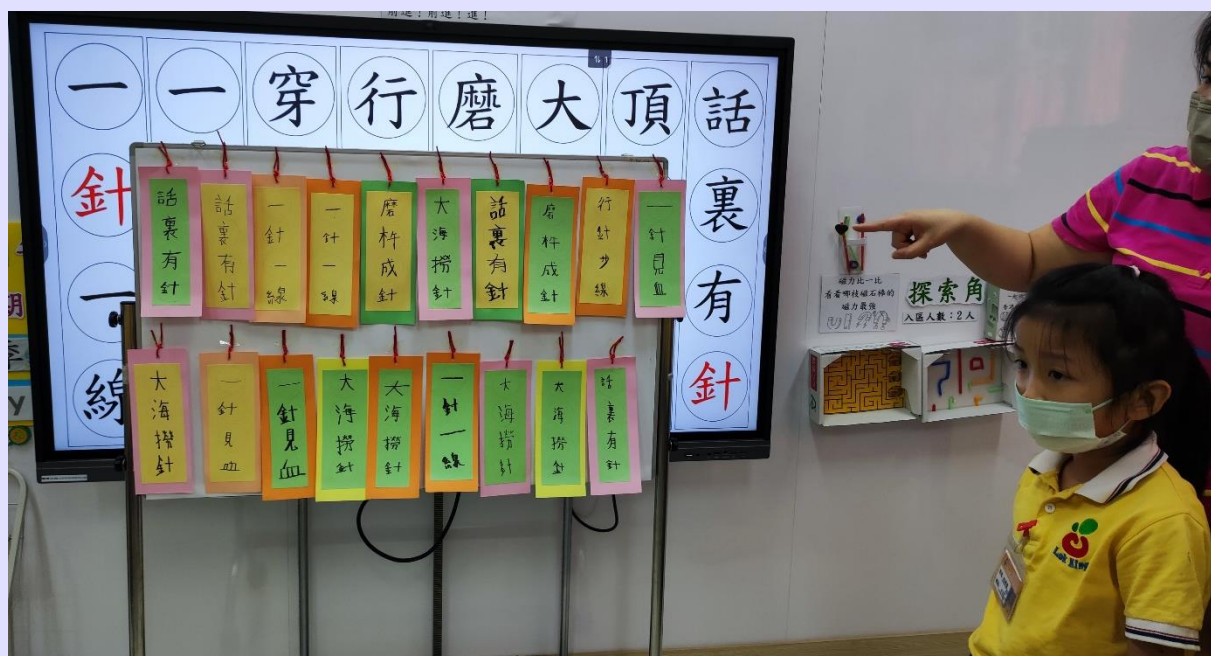 前進！前進！進！
一針一線
一
穿
行
磨
大
頂
話裏有針
話裏有針
話裏有針
一針一線
一針一線
磨杵成針
大海撈針
話裏有針
磨杵成針
行針步線
一針見血
大海撈針
一針見血
一針見血
大海撈針
大海撈針
一針一線
大海撈針
大海撈針
話裏有針
磁力比一比
看看哪枝磁石棒的
磁力最強
探索角
入區人數：2人